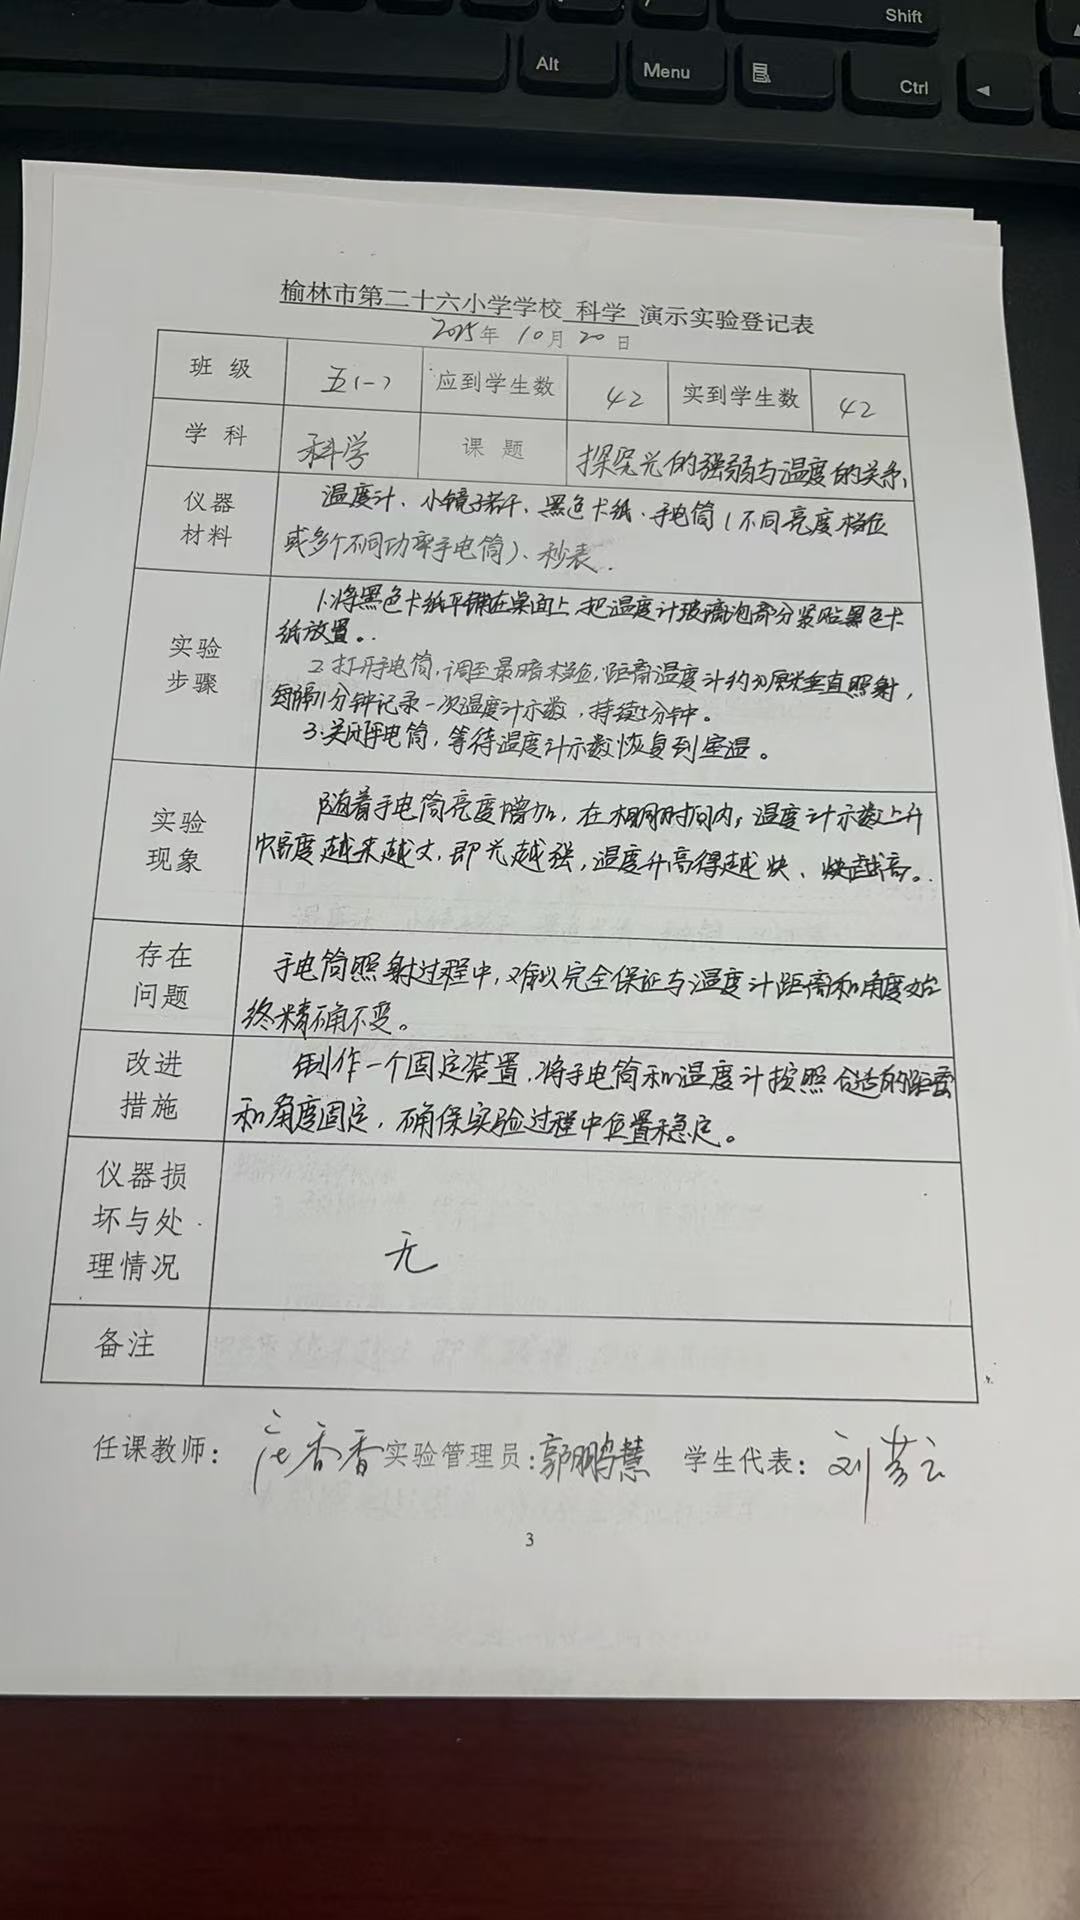 Shift
Alt
Menu
Ctrl
榆林市第二十六小学学校 科学 演示实验登记表
2025年 10月 20日
班 级 五(一) 应到学生数 42 实到学生数 42
学 科 科学 课 题 探究光的强弱与温度的关系
仪器材料 温度计、小镜子若干、黑色卡纸、手电筒(不同亮度档位
或多个不同功率手电筒)、秒表.
实验步骤 1.将黑色卡纸平铺在桌面上,把温度计玻璃泡部分紧贴黑色卡
纸放置。
2.打开手电筒,调至最暗档位,距离温度计约 厘米垂直照射,
每隔1分钟记录一次温度计示数,持续5分钟。
3.关闭手电筒,等待温度计示数恢复到室温。
实验现象 随着手电筒亮度增加,在相同时间内,温度计示数上升
幅度越来越大,即光越强,温度升高得越快、 越高。
存在问题 手电筒照射过程中,难以完全保证与温度计距离和角度始
终精确不变。
改进措施 制作一个固定装置,将手电筒和温度计按照合适的距离
和角度固定,确保实验过程中位置稳定。
仪器损坏与处理情况 无
备注
任课教师: 香香 实验管理员:郭鹏慧 学生代表:刘
3